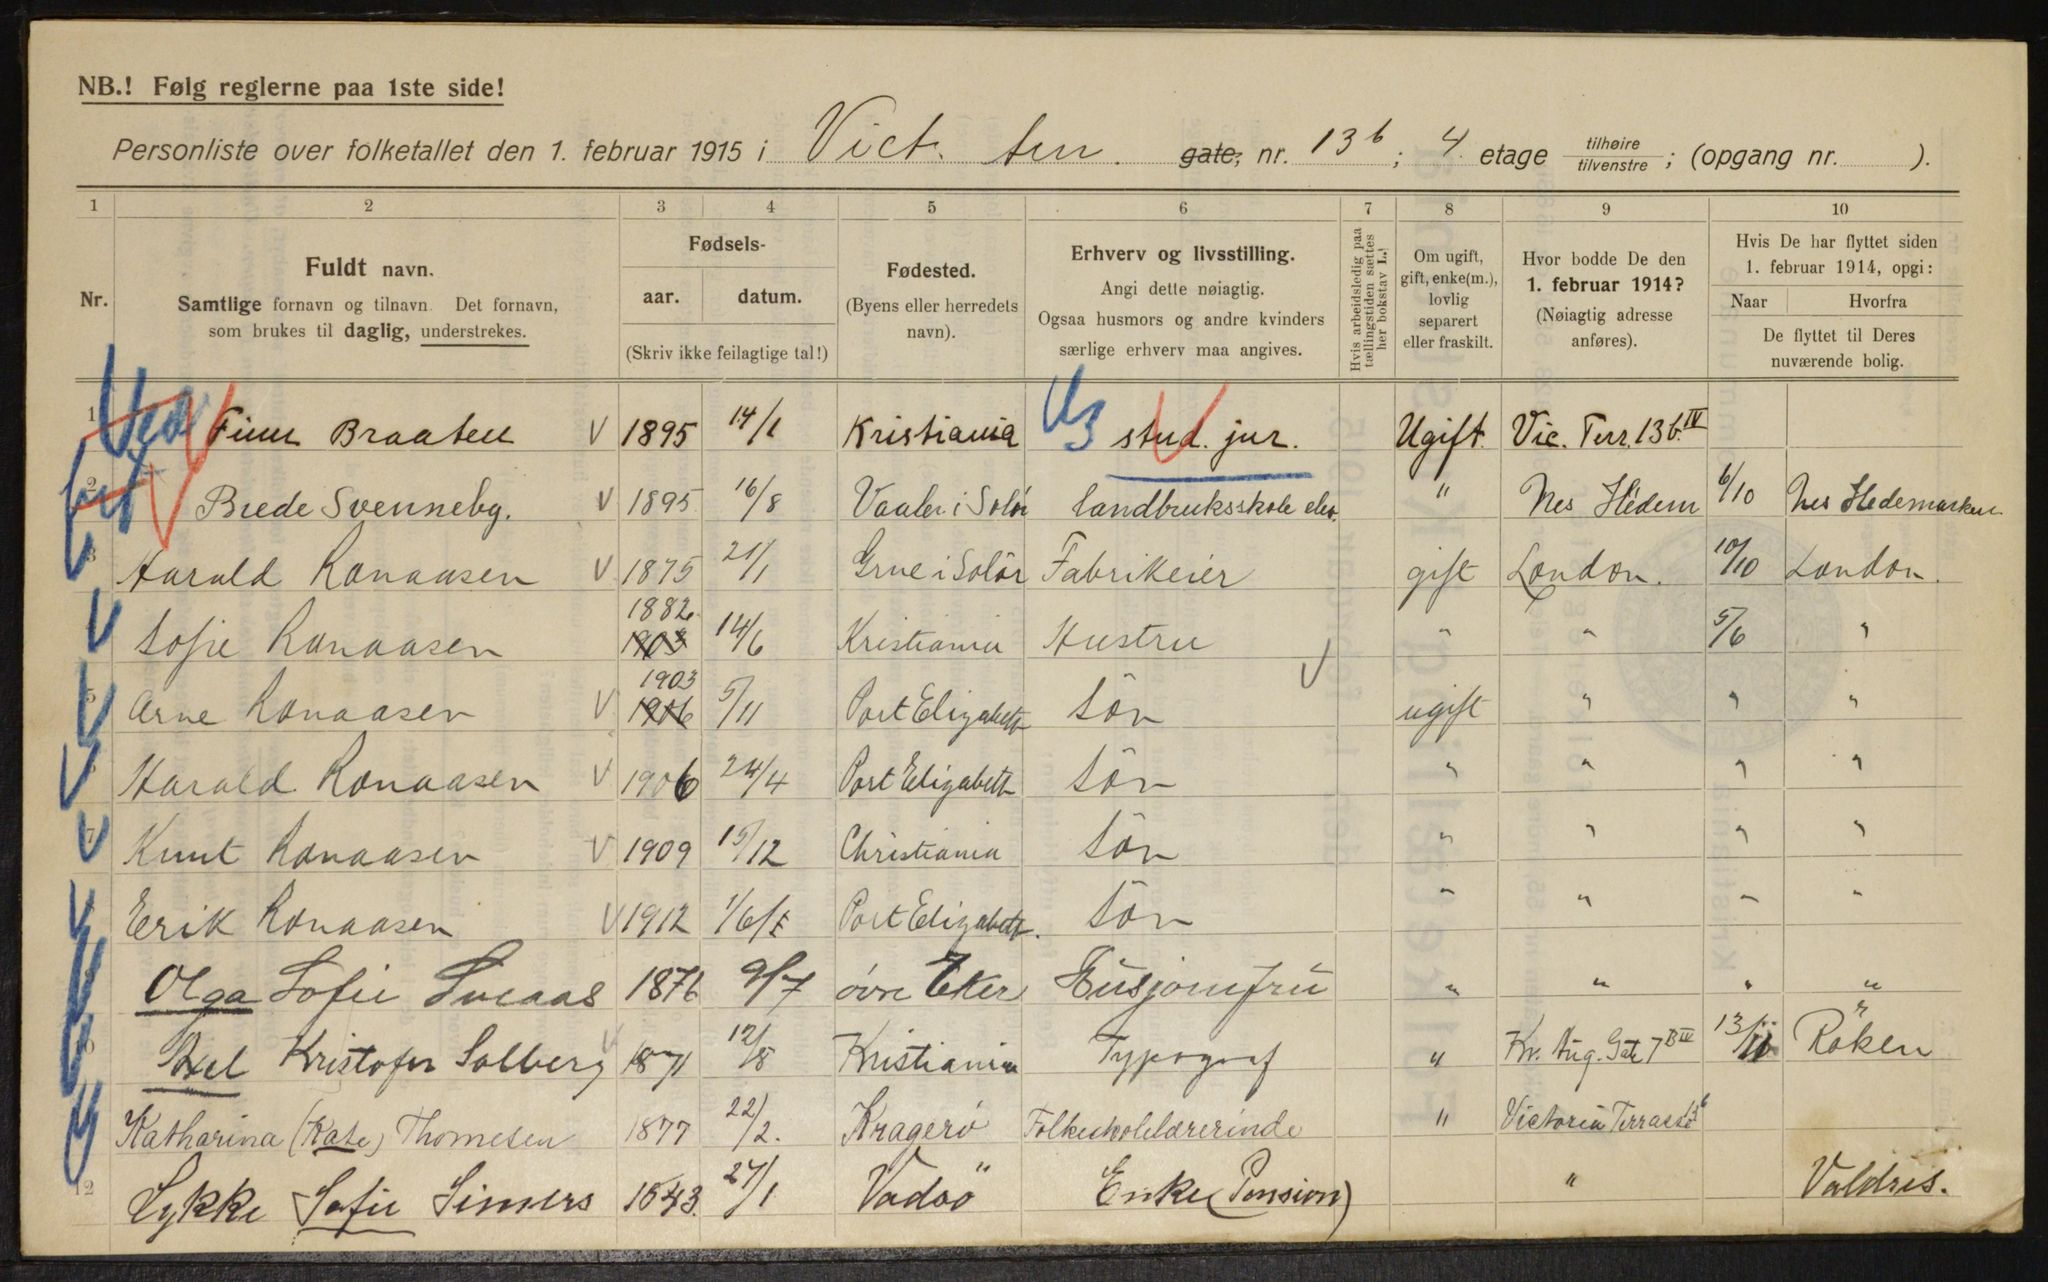 NB.! Følg reglerne paa 1ste side!
Personliste over folketallet den 1. februar 1915 i Vict. terr. gate, nr. 13 b ; 4 etage tilhøire / tilvenstre ; (opgang nr. ).
1 2 3 4 5 6 7 8 9 10
Nr. Fuldt navn. Samtlige fornavn og tilnavn. Det fornavn, som brukes til daglig, understrekes.
Fødsels- aar. datum. (Skriv ikke feilagtige tal!)
Fødested. (Byens eller herredets navn).
Erhverv og livsstilling. Angi dette nøiagtig. Ogsaa husmors og andre kvinders særlige erhverv maa angives.
Hvis arbeidsledig paa tællingstiden sættes her bokstav L.!
Om ugift, gift, enke(m.), lovlig separert eller fraskilt.
Hvor bodde De den 1. februar 1914? (Nøiagtig adresse anføres).
Hvis De har flyttet siden 1. februar 1914, opgi: Naar Hvorfra De flyttet til Deres nuværende bolig.
1 Finn Braaten V 1895 14/1 Kristiania stud. jur. Ugift Vic. Terr. 13 b. IV
2 Brede Svenneby. V 1895 16/8 Vaaler i Solør landbruksskole elev. " Nes Hedem 6/10 Nes Hedemarken
3 Harald Ronaasen V 1875 21/1 Grue i Solör Fabrikeier gift London. 10/10 London.
Sofie Ronaasen 1882 1903 14/6 Kristiania Hustru " " 5/6 "
5 Arne Ronaasen V 1903 1906 5/11 Port Elizabeth Sön ugift " " "
Harald Ronaasen V 1906 24/4 Port Elizabeth Sön " " " "
7 Knut Ronaasen V 1909 15/12 Christiania Sön " " " "
Erik Ronaasen V 1912 1/6 Port Elizabeth. Sön " " " "
9 Olga Sofie 1876 9/7 övre Eker Husjomfru " " " "
10 Axel Kristofer Solberg 1871 12/8 Kristiania Typograf " Kr. Aug. Gate 7 B IV 13/11 Röken
Katharina (Kate) Thomesen 1877 22/2. Kragerö Folkeskolelærerinde " Victoria Terrasse 13 b
12 Lykke Sofie Simers 1843. 27/1 Vadsö Enke (Pension) " Valdres.